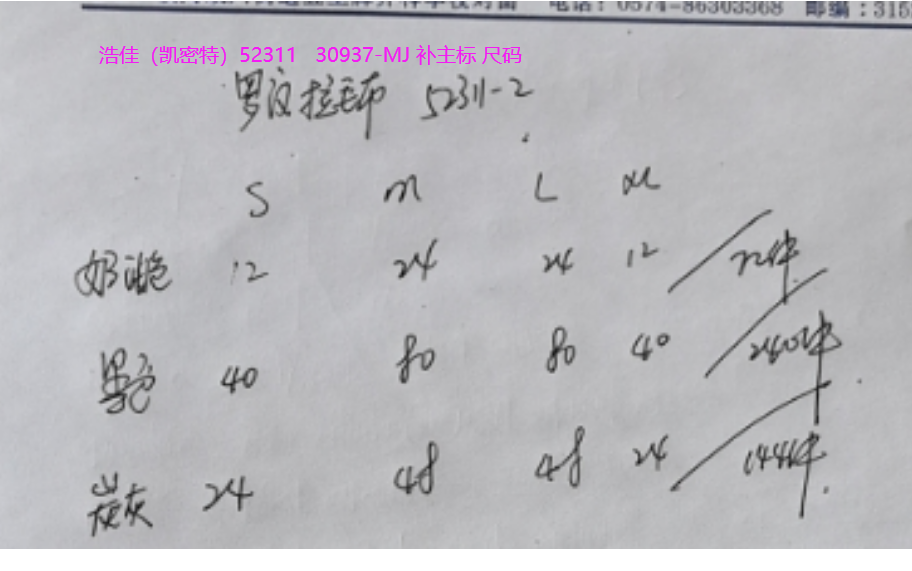 电话:0574-86303368 邮编:315
浩佳（凯密特）52311 30937-MJ 补主标 尺码
罗纹拉毛布 52311-2
S M L XL
奶油色 12 24 24 12 72件
黑色 40 80 80 40 240件
炭灰 24 48 48 24 144件